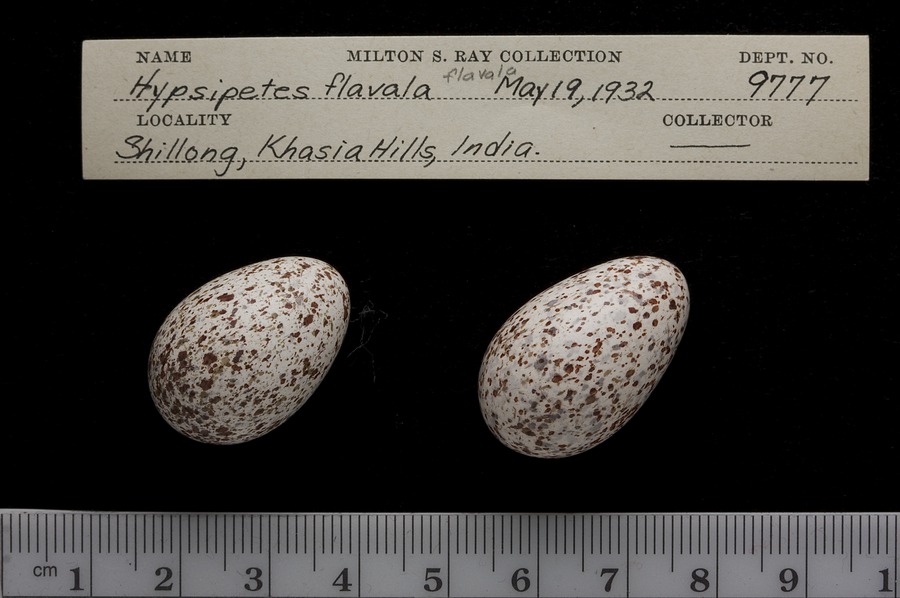 NAME MILTON S. RAY COLLECTION DEPT. NO.
Hypsipetes flavala flavala May 19, 1932 9777
LOCALITY COLLECTOR
Shillong, Khasia Hills, India.
cm 1 2 3 4 5 6 7 8 9 1